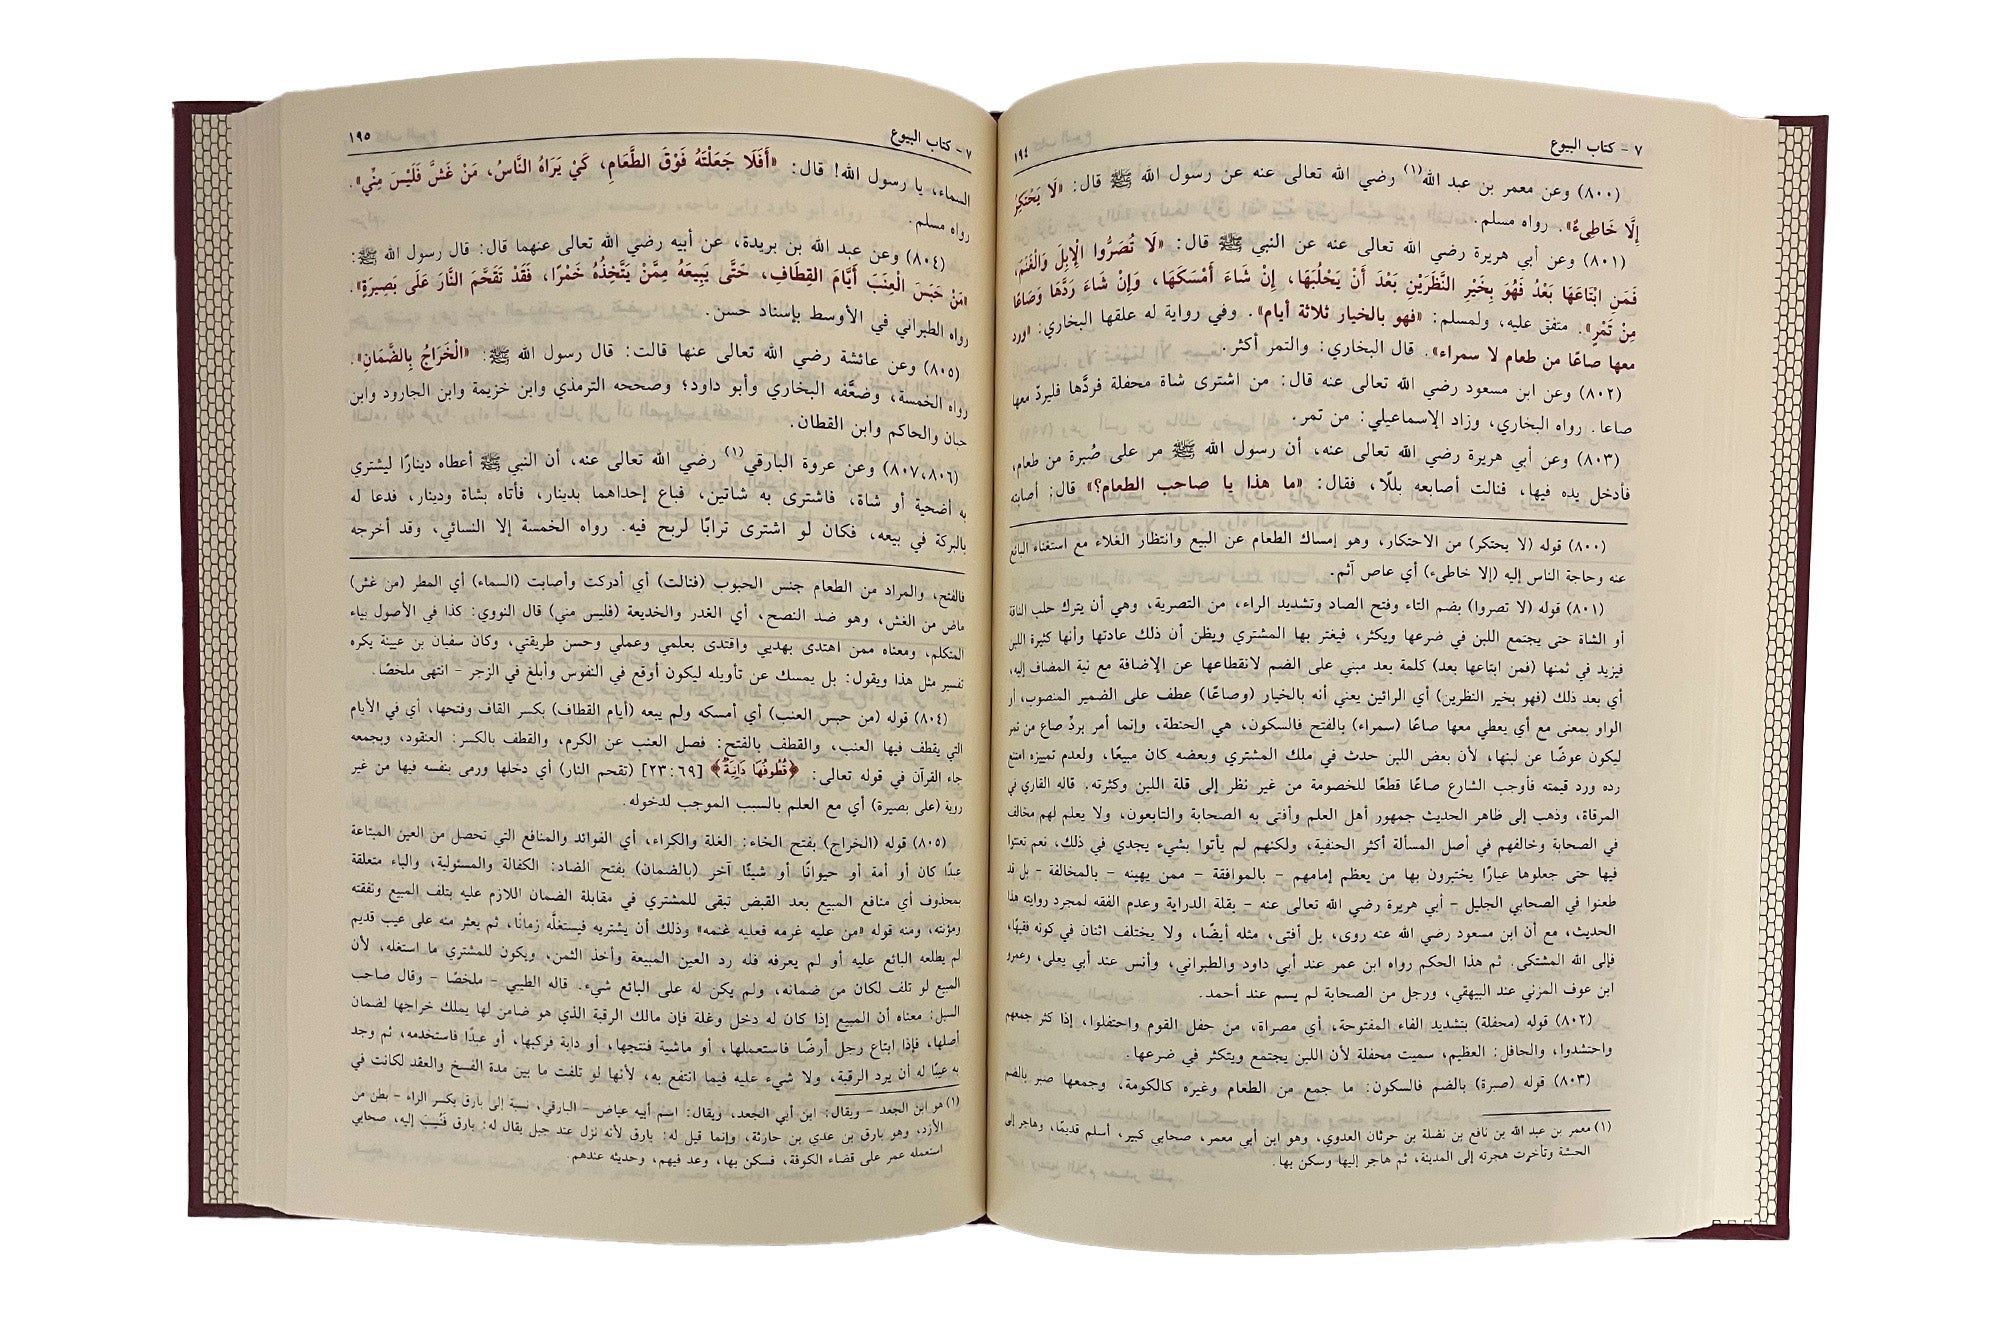 ٧ - كتاب البيوع
١٩٤
(٨٠٠) وعن معمر بن عبد الله(١) رضي الله تعالى عنه عن رسول الله ﷺ قال: «لَا يَحْتَكِرُ
إِلَّا خَاطِىءٌ». رواه مسلم.
(٨٠١) وعن أبي هريرة رضي الله تعالى عنه عن النبي ﷺ قال: «لَا تُصَرُّوا الْإِبِلَ وَالْغَنَمَ،
فَمَنِ ابْتَاعَهَا بَعْدُ فَهُوَ بِخَيْرِ النَّظَرَيْنِ بَعْدَ أَنْ يَحْلُبَهَا، إِنْ شَاءَ أَمْسَكَهَا، وَإِنْ شَاءَ رَدَّهَا وَصَاعًا
مِنْ تَمْرٍ». متفق عليه، ولمسلم: «فهو بالخيار ثلاثة أيام». وفي رواية له علقها البخاري: «ورد
معها صاعًا من طعام لا سمراء». قال البخاري: والتمر أكثر.
(٨٠٢) وعن ابن مسعود رضي الله تعالى عنه قال: من اشترى شاة محفلة فردَّها فليردّ معها
صاعا. رواه البخاري، وزاد الإسماعيلي: من تمر.
(٨٠٣) وعن أبي هريرة رضي الله تعالى عنه، أن رسول الله ﷺ مر على صُبرة من طعام،
فأدخل يده فيها، فنالت أصابعه بللًا، فقال: «ما هذا يا صاحب الطعام؟» قال: أصابته
(٨٠٠) قوله (لا يحتكر) من الاحتكار، وهو إمساك الطعام عن البيع وانتظار الغلاء مع استغناء البائع
عنه وحاجة الناس إليه (إلا خاطىء) أي عاص آثم.
(٨٠١) قوله (لا تصروا) بضم التاء وفتح الصاد وتشديد الراء، من التصرية، وهي أن يترك حلب الناقة
أو الشاة حتى يجتمع اللبن في ضرعها ويكثر، فيغتر بها المشتري ويظن أن ذلك عادتها وأنها كثيرة اللبن
فيزيد في ثمنها (فمن ابتاعها بعد) كلمة بعد مبني على الضم لانقطاعها عن الإضافة مع نية المضاف إليه،
أي بعد ذلك (فهو بخير النظرين) أي الرائين يعني أنه بالخيار (وصاعًا) عطف على الضمير المنصوب، أو
الواو بمعنى مع أي يعطي معها صاعًا (سمراء) بالفتح فالسكون، هي الحنطة، وإنما أمر بردِّ صاع من تمر
ليكون عوضًا عن لبنها، لأن بعض اللبن حدث في ملك المشتري وبعضه كان مبيعًا، ولعدم تمييزه امتنع
رده ورد قيمته فأوجب الشارع صاعًا قطعًا للخصومة من غير نظر إلى قلة اللبن وكثرته. قاله القاري في
المرقاة، وذهب إلى ظاهر الحديث جمهور أهل العلم وأفتى به الصحابة والتابعون، ولا يعلم لهم مخالف
في الصحابة وخالفهم في أصل المسألة أكثر الحنفية، ولكنهم لم يأتوا بشيء يجدي في ذلك، نعم تعنتوا
فيها حتى جعلوها عيارًا يختبرون بها من يعظم إمامهم - بالموافقة - ممن يهينه - بالمخالفة - بل قد
طعنوا في الصحابي الجليل - أبي هريرة رضي الله تعالى عنه - بقلة الدراية وعدم الفقه لمجرد روايته هذا
الحديث، مع أن ابن مسعود رضي الله عنه روى، بل أفتى، مثله أيضًا، ولا يختلف اثنان في كونه فقيهًا،
فإلى الله المشتكى. ثم هذا الحكم رواه ابن عمر عند أبي داود والطبراني، وأنس عند أبي يعلى، وعمرو
ابن عوف المزني عند البيهقي، ورجل من الصحابة لم يسم عند أحمد.
(٨٠٢) قوله (محفلة) بتشديد الفاء المفتوحة، أي مصراة، من حفل القوم واحتفلوا، إذا كثر جمعهم
واحتشدوا، والحافل: العظيم، سميت محفلة لأن اللبن يجتمع ويتكثر في ضرعها.
(٨٠٣) قوله (صبرة) بالضم فالسكون: ما جمع من الطعام وغيره كالكومة، وجمعها صبر بالضم
(١) معمر بن عبد الله بن نافع بن نضلة بن حرثان العدوي، وهو ابن أبي معمر، صحابي كبير، أسلم قديمًا، وهاجر إلى
الحبشة وتأخرت هجرته إلى المدينة، ثم هاجر إليها وسكن بها.
٧ - كتاب البيوع
١٩٥
السماء، يا رسول الله! قال: «أَفَلَا جَعَلْتَهُ فَوْقَ الطَّعَامِ، كَيْ يَرَاهُ النَّاسُ، مَنْ غَشَّ فَلَيْسَ مِنِّي».
رواه مسلم.
(٨٠٤) وعن عبد الله بن بريدة، عن أبيه رضي الله تعالى عنهما قال: قال رسول الله ﷺ:
«مَنْ حَبَسَ الْعِنَبَ أَيَّامَ القِطَافِ، حَتَّى يَبِيعَهُ مِمَّنْ يَتَّخِذُهُ خَمْرًا، فَقَدْ تَقَحَّمَ النَّارَ عَلَى بَصِيرَةٍ».
رواه الطبراني في الأوسط بإسناد حسن.
(٨٠٥) وعن عائشة رضي الله تعالى عنها قالت: قال رسول الله ﷺ: «الْخَرَاجُ بِالضَّمَانِ».
رواه الخمسة، وضعَّفه البخاري وأبو داود؛ وصححه الترمذي وابن خزيمة وابن الجارود وابن
حبان والحاكم وابن القطان.
(٨٠٧،٨٠٦) وعن عروة البارقي(١) رضي الله تعالى عنه، أن النبي ﷺ أعطاه دينارًا ليشتري
به أضحية أو شاة، فاشترى به شاتين، فباع إحداهما بدينار، فأتاه بشاة ودينار، فدعا له
بالبركة في بيعه، فكان لو اشترى ترابًا لربح فيه. رواه الخمسة إلا النسائي، وقد أخرجه
فالفتح، والمراد من الطعام جنس الحبوب (فنالت) أي أدركت وأصابت (السماء) أي المطر (من غش)
ماض من الغش، وهو ضد النصح، أي الغدر والخديعة (فليس مني) قال النووي: كذا في الأصول بياء
المتكلم، ومعناه ممن اهتدى بهديي واقتدى بعلمي وعملي وحسن طريقتي، وكان سفيان بن عيينة يكره
تفسير مثل هذا ويقول: بل يمسك عن تأويله ليكون أوقع في النفوس وأبلغ في الزجر - انتهى ملخصًا.
(٨٠٤) قوله (من حبس العنب) أي أمسكه ولم يبعه (أيام القطاف) بكسر القاف وفتحها، أي في الأيام
التي يقطف فيها العنب، والقطف بالفتح: فصل العنب عن الكرم، والقطف بالكسر: العنقود، وبجمعه
جاء القرآن في قوله تعالى: ﴿قُطُوفُهَا دَانِيَةٌ﴾ [٦٩: ٢٣] (تقحم النار) أي دخلها ورمى بنفسه فيها من غير
روية (على بصيرة) أي مع العلم بالسبب الموجب لدخوله.
(٨٠٥) قوله (الخراج) بفتح الخاء: الغلة والكراء، أي الفوائد والمنافع التي تحصل من العين المبتاعة
عبدًا كان أو أمة أو حيوانًا أو شيئًا آخر (بالضمان) بفتح الضاد: الكفالة والمسئولية، والباء متعلقة
بمحذوف أي منافع المبيع بعد القبض تبقى للمشتري في مقابلة الضمان اللازم عليه بتلف المبيع ونفقته
ومؤنته، ومنه قوله «من عليه غرمه فعليه غنمه» وذلك أن يشتريه فيستغلَّه زمانًا، ثم يعثر منه على عيب قديم
لم يطلعه البائع عليه أو لم يعرفه فله رد العين المبيعة وأخذ الثمن، ويكون للمشتري ما استغله، لأن
المبيع لو تلف لكان من ضمانه، ولم يكن له على البائع شيء. قاله الطيبي - ملخصًا - وقال صاحب
السبل: معناه أن المبيع إذا كان له دخل وغلة فإن مالك الرقبة الذي هو ضامن لها يملك خراجها لضمان
أصلها، فإذا ابتاع رجل أرضًا فاستعملها، أو ماشية فنتجها، أو دابة فركبها، أو عبدًا فاستخدمه، ثم وجد
به عيبًا له أن يرد الرقبة، ولا شيء عليه فيما انتفع به، لأنها لو تلفت ما بين مدة الفسخ والعقد لكانت في
(١) هو ابن الجعد - ويقال: ابن أبي الجعد، ويقال: اسم أبيه عياض - البارقي، نسبة إلى بارق بكسر الراء - بطن من
الأزد، وهو بارق بن عدي بن حارثة، وإنما قيل له: بارق لأنه نزل عند جبل يقال له: بارق فنُسِبَ إليه، صحابي
استعمله عمر على قضاء الكوفة، فسكن بها، وعد فيهم، وحديثه عندهم.